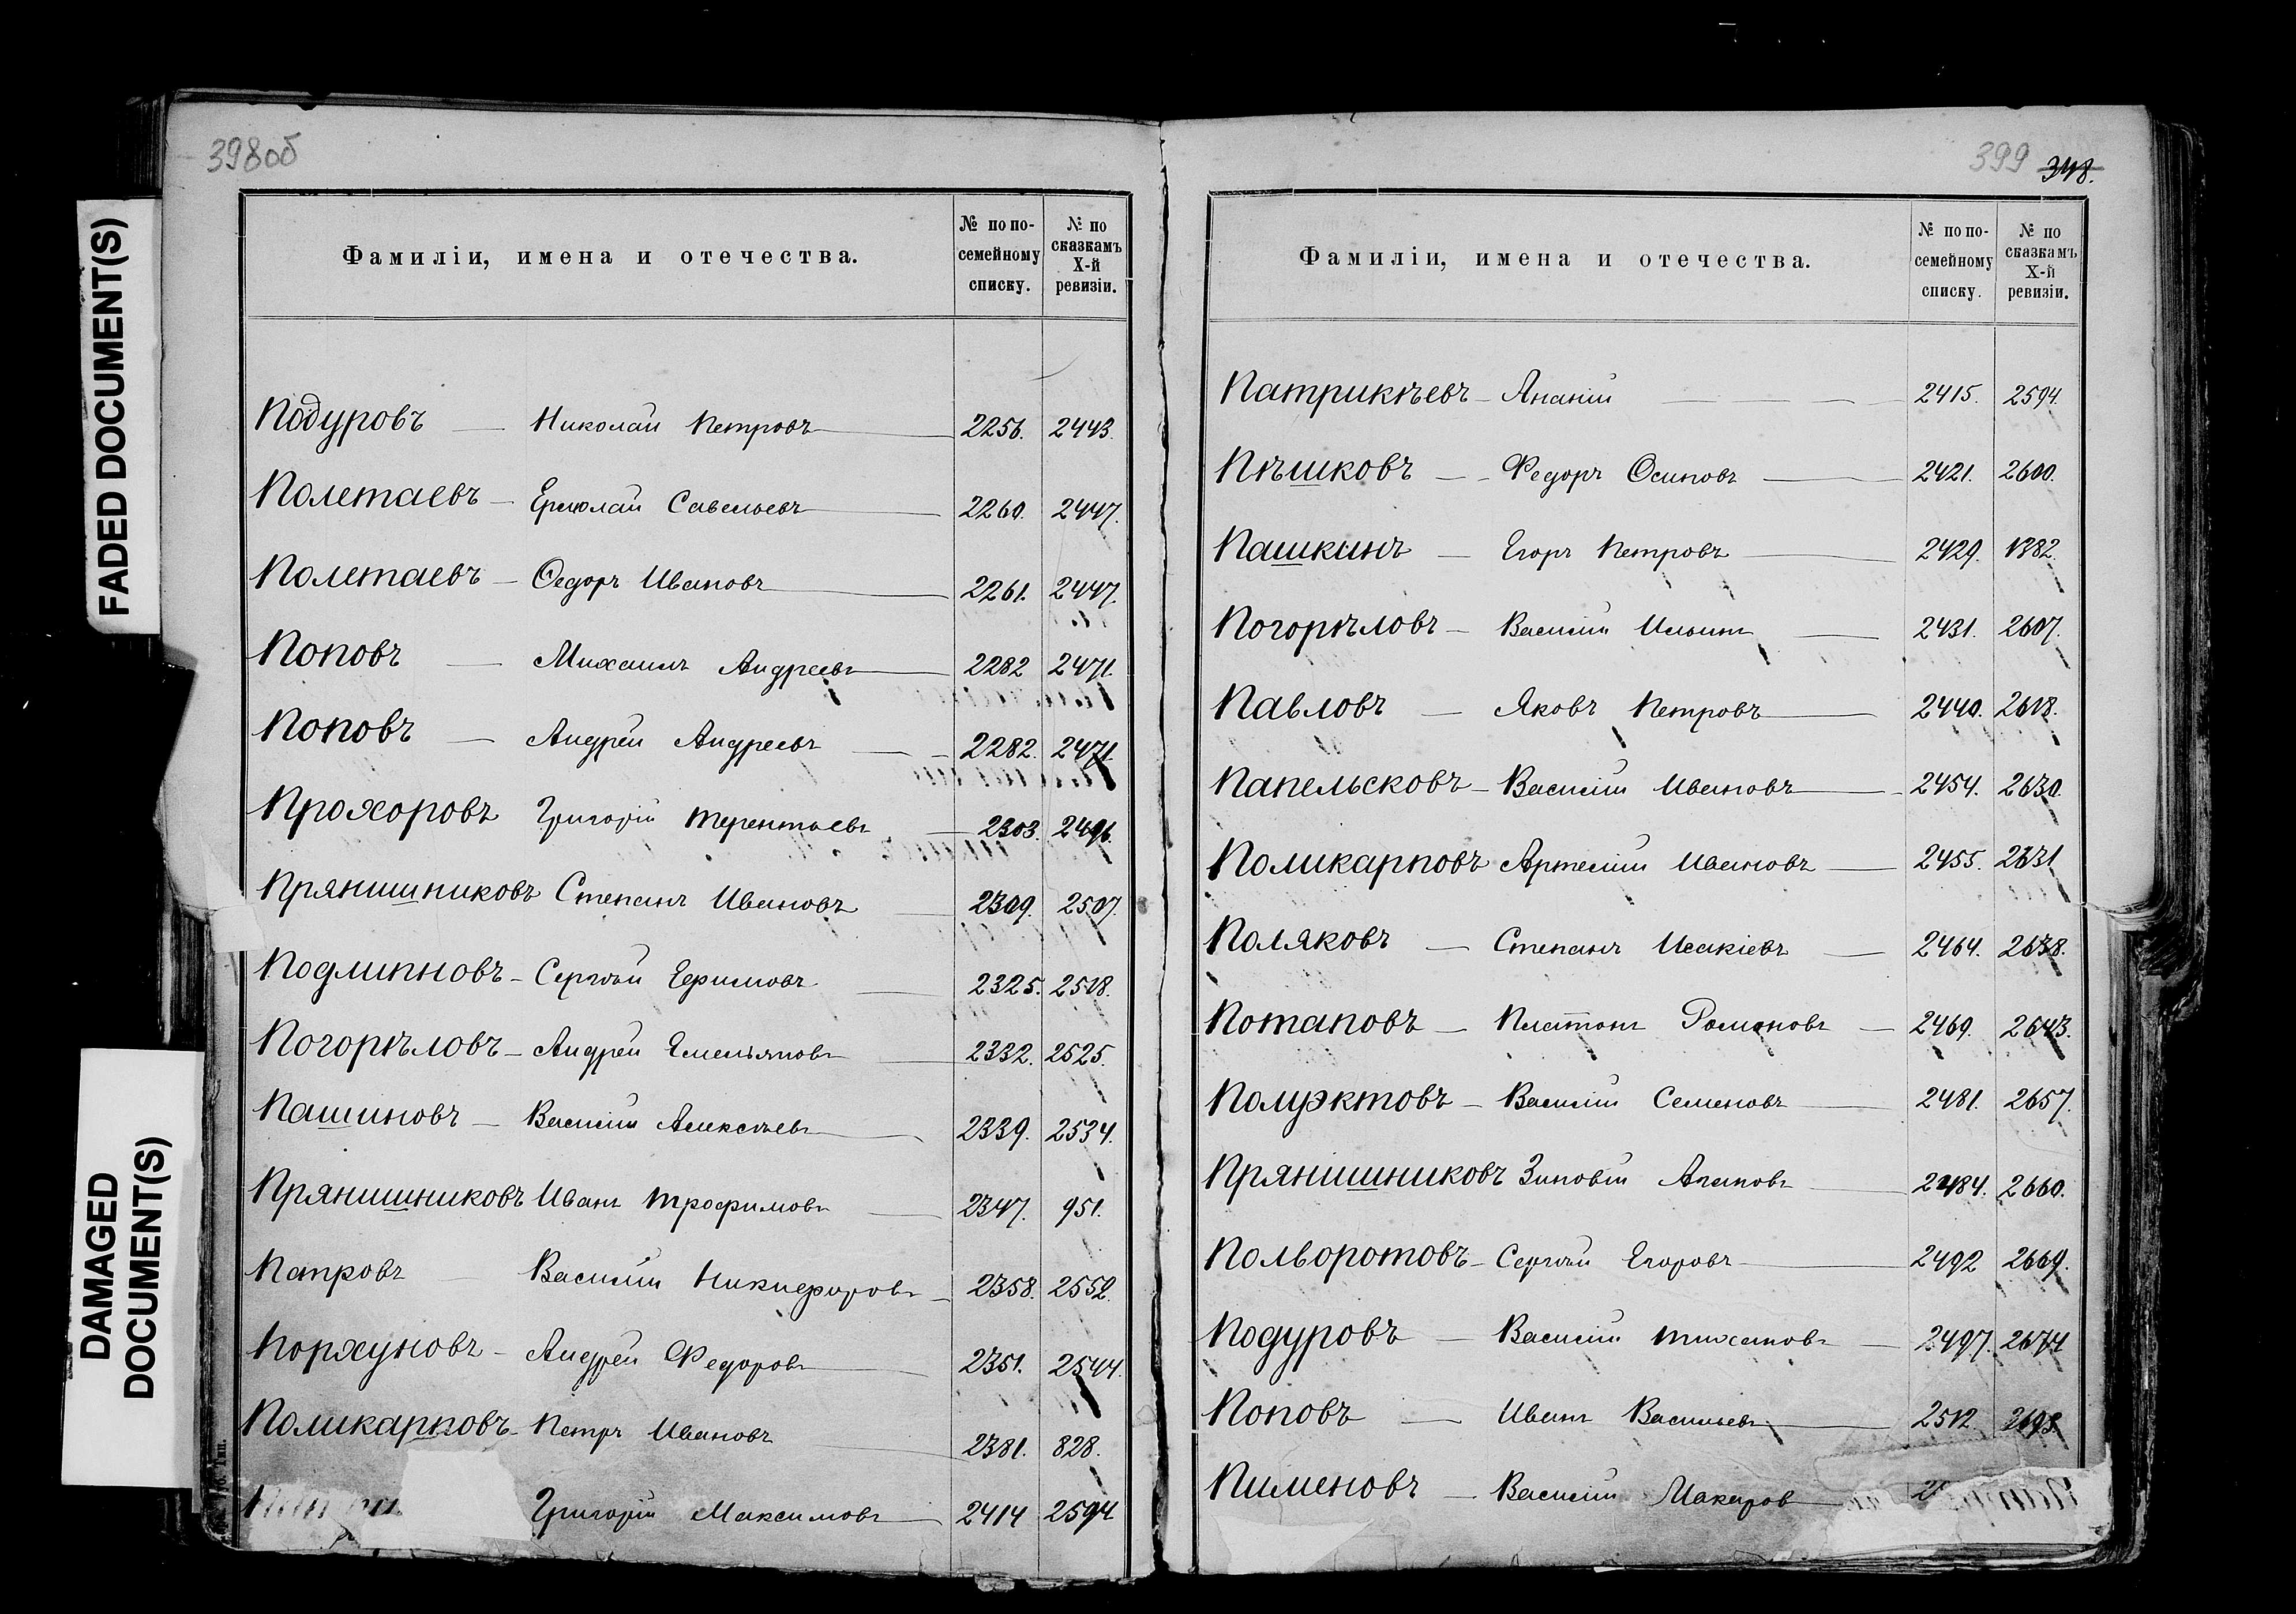 398об
Фамиліи, имена и отечества.
№ по по-
семейному
списку.
№ по
сказкамъ
X-й
ревизіи.
Подуровъ — Николай Петровъ 2256. 2443.
Полетаевъ — Ермолай Савельевъ 2260. 2447.
Полетаевъ — Ѳедоръ Ивановъ 2261. 2447.
Поповъ — Михаилъ Андреевъ 2282 2471.
Поповъ — Андрей Андреевъ 2282. 2471.
Прохоровъ Григорій Терентьевъ 2303. 2496.
Прянишниковъ Степанъ Ивановъ 2309. 2507.
Подлипновъ — Сергѣй Ефимовъ 2325. 2518.
Погорѣловъ — Андрей Емельяновъ 2332. 2525.
Пашиновъ — Василій Алексѣевъ 2339. 2534.
Прянишниковъ Иванъ Трофимовъ 2347. 951.
Петровъ Василій Никифоровъ 2358. 2552.
Порхуновъ — Андрей Федоровъ 2351. 2544.
Поликарповъ — Петръ Ивановъ 2381. 828.
Григорій Максимовъ 2414 2594
399 348.
Фамиліи, имена и отечества.
№ по по-
семейному
списку.
№ по
сказкамъ
X-й
ревизіи.
Патрикѣевъ — Ананій 2415. 2594.
Пѣшковъ — Федоръ Осиповъ 2421. 2600.
Пашкинъ — Егоръ Петровъ 2429. 1382.
Погорѣловъ — Василій Ильинъ 2431. 2607.
Павловъ — Яковъ Петровъ 2440. 2618.
Папельсковъ — Василій Ивановъ 2454. 2630.
Поликарповъ Артемій Ивановъ 2455. 2631
Поляковъ — Степанъ Исакіевъ 2464. 2638.
Потаповъ — Платонъ Романовъ 2469. 2643.
Полуэктовъ — Василій Семеновъ 2481. 2657.
Прянишниковъ Зиновій Агаповъ 2484. 2660.
Польворотовъ — Сергѣй Егоровъ 2492 2669.
Подуровъ — Василій Тихановъ 2497. 2674
Поповъ — Иванъ Васильевъ 2512. 2693.
Пименовъ — Василій Макаров
FADED DOCUMENT(S)
DAMAGED
DOCUMENT(S)